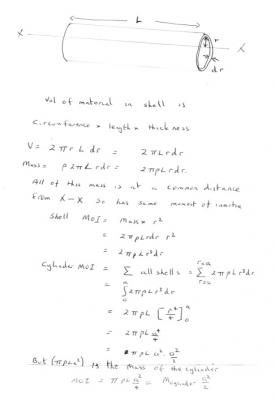 L
X
X
r
dr
Vol of material in shell is
Circumference x length x thickness
V = 2πr L dr = 2πLrdr
Mass = ρ2πL rdr = 2πρLrdr.
All of this mass is at a common distance
from X-X so has same moment of inertia
Shell MOI = Mass x r²
= 2πρLrdr r²
= 2πρLr³dr
Cylinder MOI = ∑ all shells = ∑ 2πρLr³dr
r=a
r=0
= ∫₀ᵃ 2πρLr³dr
= 2πρL [r⁴/4]₀ᵃ
= 2πρL a⁴/4
= πρL a². a²/2
But (πρLa²) is the mass of the cylinder
MOI = πρL a²/4 = Mcylinder a²/2